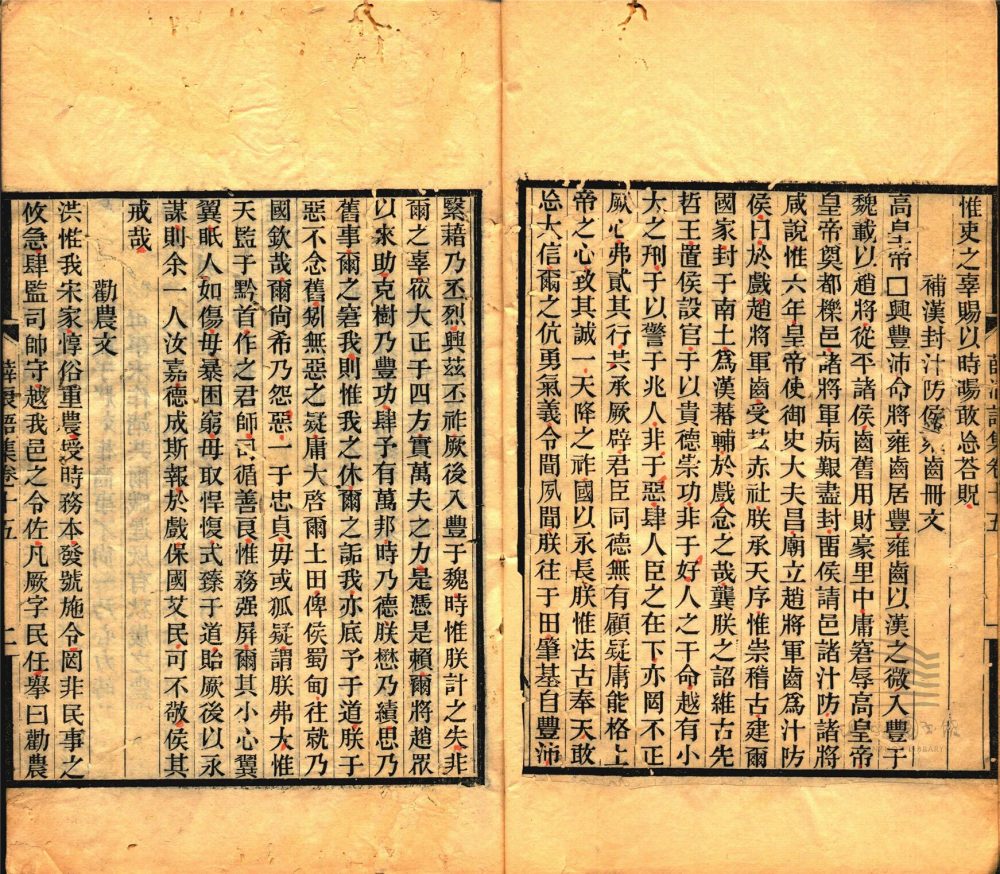 惟吏之辜賜以時暘敢怠荅貺
補漢封汁防侯雍齒冊文
高皇帝囗興豐沛命將雍齒居豐雍齒以漢之微入豐于
魏載以趙將從平諸侯齒舊用財豪里中庸窘辱高皇帝
皇帝奠都櫟邑諸將軍病艱盡封畱侯請邑諸汁防諸將
咸說惟六年皇帝使御史大夫昌廟立趙將軍齒爲汁防
侯曰於戲趙將軍齒受茲赤社朕承天序惟崇稽古建爾
國家封于南土爲漢蕃輔於戲念之哉龔朕之詔維古先
哲王置侯設官于以貴德崇功非于好人之干命越有小
大之刑于以警于兆人非于惡肆人臣之在下亦罔不正
厥心弗貳其行共承厥辟君臣同德無有顧疑庸能格上
帝之心致其誠一天降之祚國以永長朕惟法古奉天敢
怠大信爾之伉勇氣義令聞夙聞朕往于田肇基自豐沛
繄藉乃丕烈興茲丕祚厥後入豐于魏時惟朕計之失非
爾之辜宓大正于四方實萬夫之力是憑是賴爾將趙眾
以來助克樹乃豐功肆予有萬邦時乃德朕懋乃績思乃
舊事爾之窘我則惟我之休爾之詬我亦底予于道朕于
惡不念舊矧無惡之疑庸大啓爾土田俾侯蜀甸往就乃
國欽哉爾尙希乃怨惡一于忠貞毋或狐疑謂朕弗大惟
天監于黔首作之君師司循善良惟務强屏爾其小心翼
翼眂人如傷毋暴困窮毋取悍愎式臻于道貽厥後以永
謀則余一人汝嘉德成斯報於戲保國艾民可不敬侯其
戒哉
勸農文
洪惟我宋家惇俗重農授時務本發號施令罔非民事之
攸急肆監司帥守越我邑之令佐凡厥字民任舉曰勸農
薛浪語集卷十五